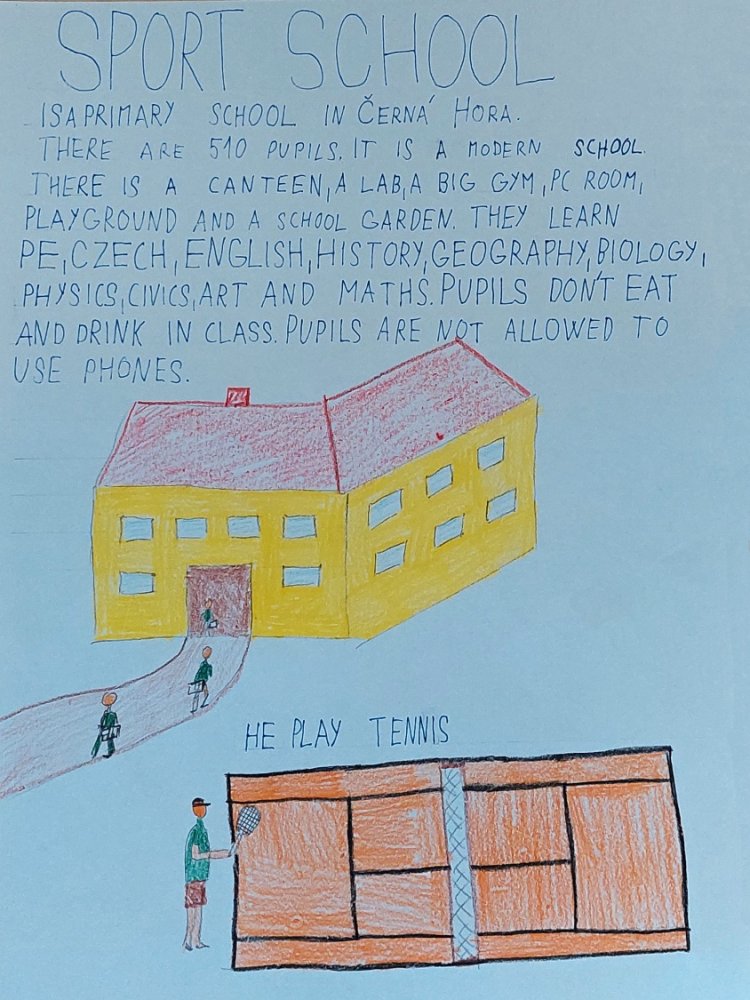 SPORT SCHOOL
ISAPRIMARY SCHOOL IN ČERNÁ HORA.
THERE ARE 510 PUPILS. IT IS A MODERN SCHOOL.
THERE IS A CANTEEN, A LAB, A BIG GYM, PC ROOM,
PLAYGROUND AND A SCHOOL GARDEN. THEY LEARN
PE, CZECH, ENGLISH, HISTORY, GEOGRAPHY, BIOLOGY,
PHYSICS, CIVICS, ART AND MATHS. PUPILS DON'T EAT
AND DRINK IN CLASS. PUPILS ARE NOT ALLOWED TO
USE PHONES.
HE PLAY TENNIS